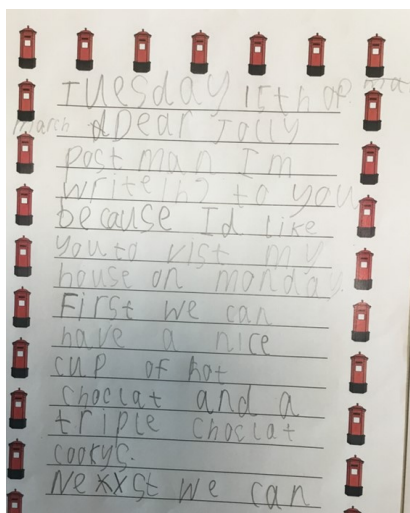 Tuesday 15th of ma
march dDear Jolly
post man I'm
writeing to you
because Id like
you to vist my
house on monday.
First we can
have a nice
cup of hot
choclat and a
triple choclat
cookys.
Nexxst we can